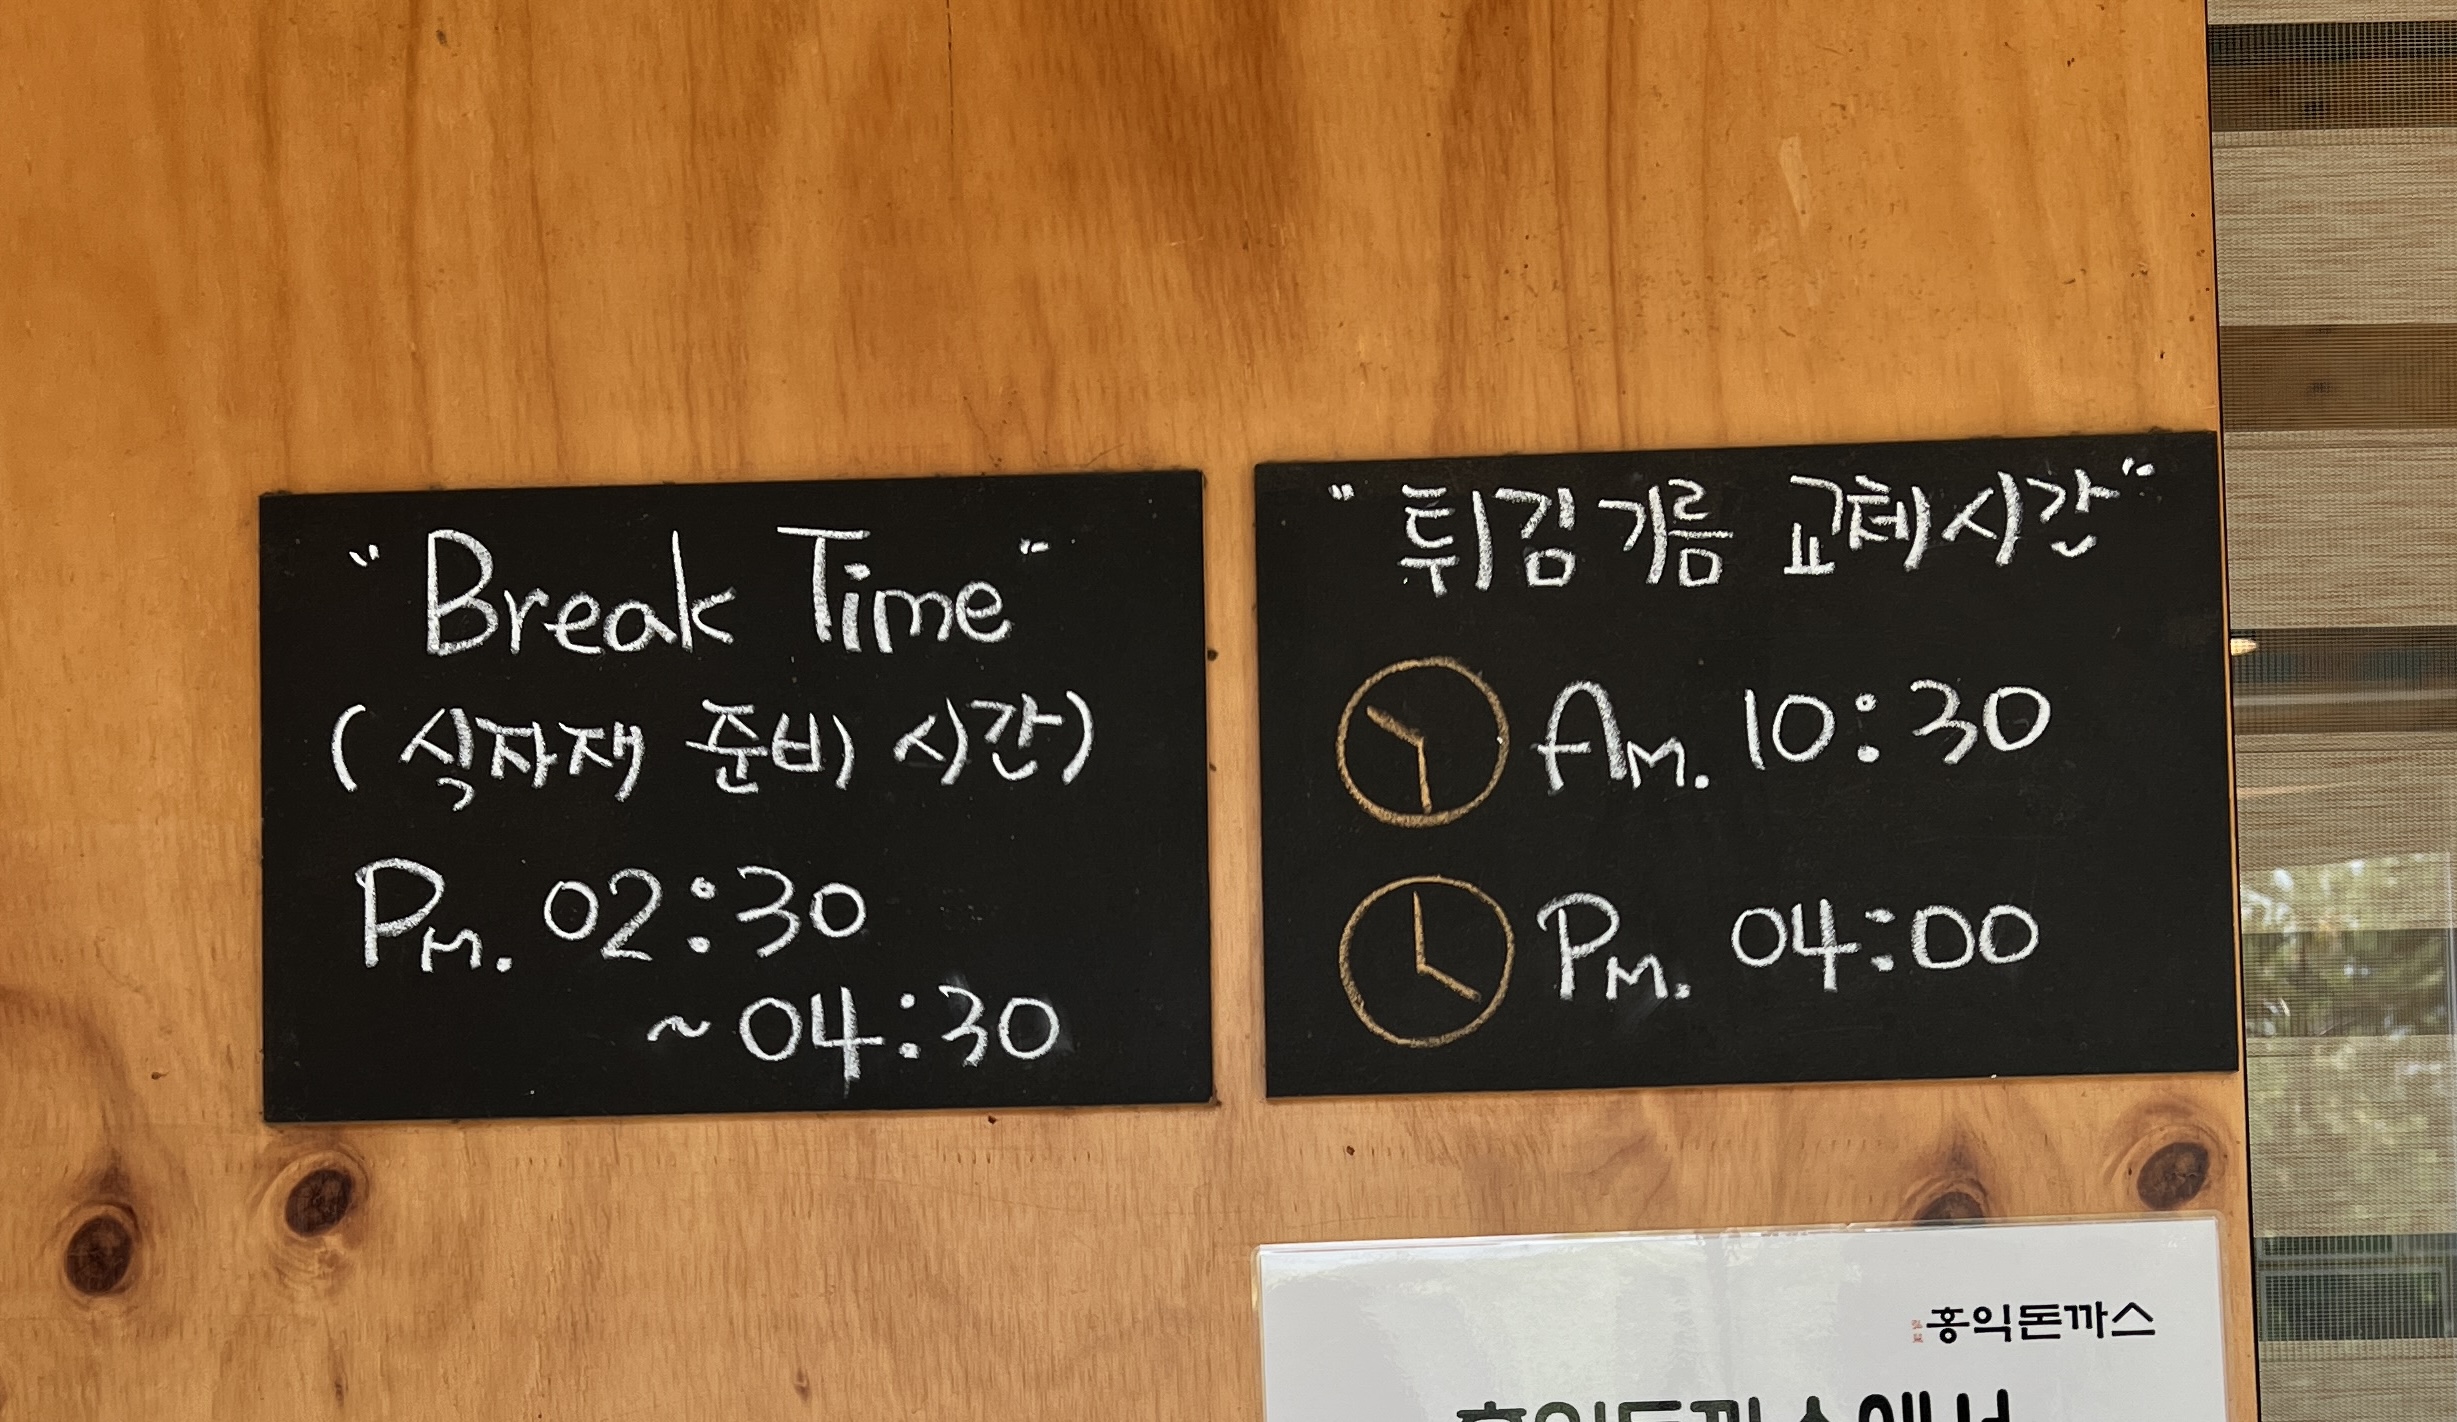 "Break Time"
(식자재 준비 시간)
PM. 02:30
~04:30
"튀김기름 교체시간"
AM. 10:30
PM. 04:00
홍익돈까스
홍익돈까스에서